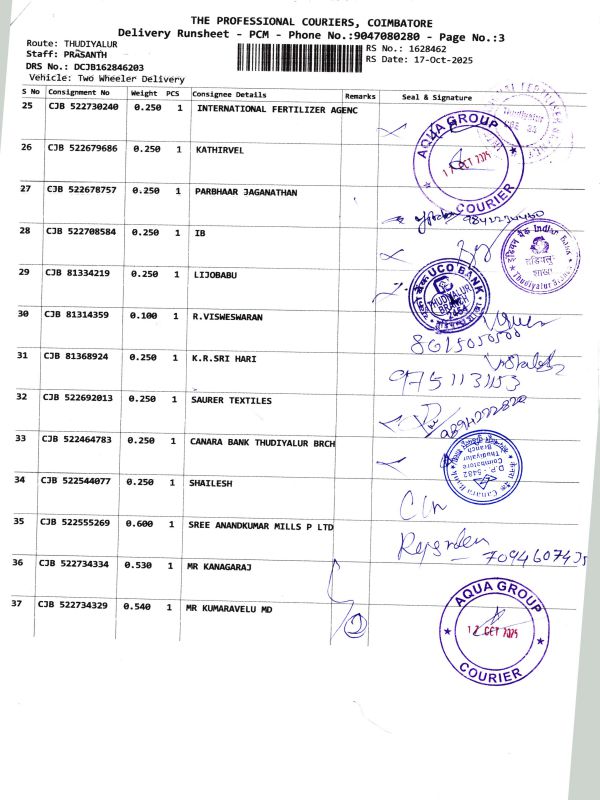 THE PROFESSIONAL COURIERS, COIMBATORE
Delivery Runsheet - PCM - Phone No.:9047080280 - Page No.:3
Route: THUDIYALUR
RS No.: 1628462
Staff: PRASANTH
RS Date: 17-Oct-2025
DRS No.: DCJB162846203
Vehicle: Two Wheeler Delivery
S No Consignment No Weight PCS Consignee Details Remarks Seal & Signature
25 CJB 522730240 0.250 1 INTERNATIONAL FERTILIZER AGENC
AQUA GROUP
OCT 2025
COURIER
26 CJB 522679686 0.250 1 KATHIRVEL
27 CJB 522678757 0.250 1 PARBHAAR JAGANATHAN
28 CJB 522708584 0.250 1 IB
इंडियन बैंक Indian Bank
शाखा
Thudiyalur Branch
29 CJB 81334219 0.250 1 LIJOBABU
UCO BANK
THUDIYALUR
BRANCH
30 CJB 81314359 0.100 1 R.VISWESWARAN
8615050500
31 CJB 81368924 0.250 1 K.R.SRI HARI
975113153
32 CJB 522692013 0.250 1 SAURER TEXTILES
9894222820
33 CJB 522464783 0.250 1 CANARA BANK THUDIYALUR BRCH
Canara Bank
D.P. - 5482
Thudiyalur Branch
Coimbatore
34 CJB 522544077 0.250 1 SHAILESH
35 CJB 522555269 0.600 1 SREE ANANDKUMAR MILLS P LTD
7094607435
36 CJB 522734334 0.530 1 MR KANAGARAJ
37 CJB 522734329 0.540 1 MR KUMARAVELU MD
2
AQUA GROUP
OCT 2025
COURIER